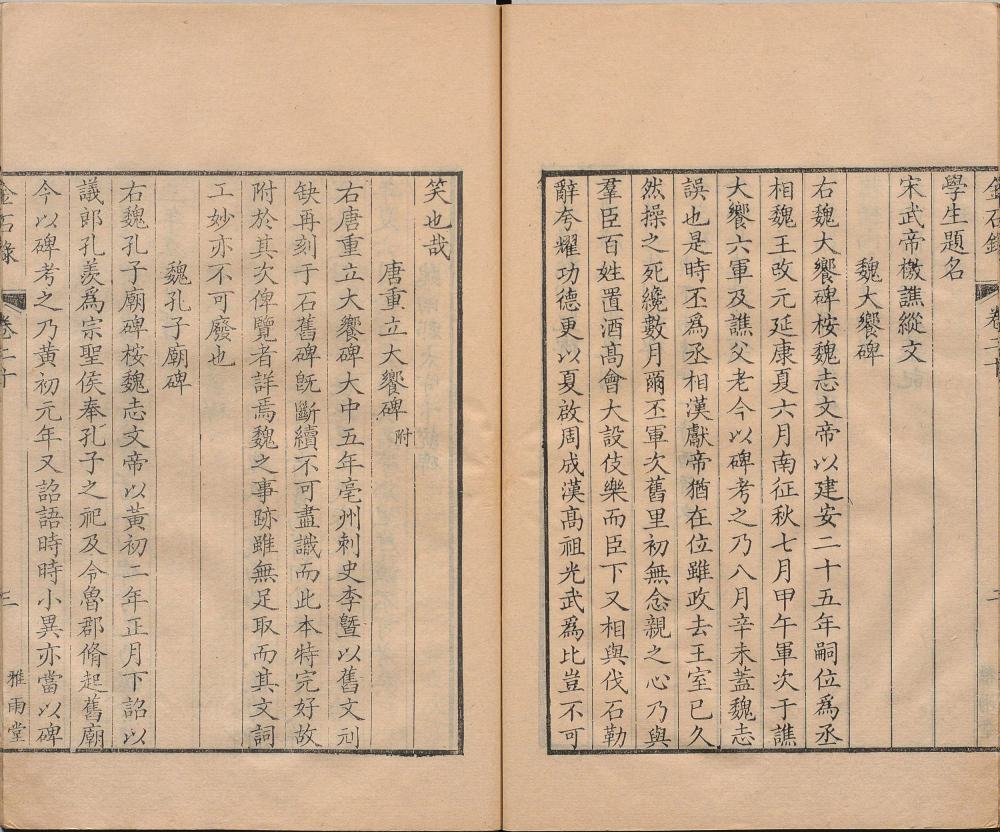 學生題名
宋武帝檄譙縱文
魏大饗碑
右魏大饗碑桉魏志文帝以建安二十五年嗣位爲丞
相魏王改元延康夏六月南征秋七月甲午軍次于譙
大饗六軍及譙父老今以碑考之乃八月辛未蓋魏志
誤也是時丕爲丞相漢獻帝猶在位雖政去王室已久
然操之死纔數月爾丕軍次舊里初無念親之心乃與
羣臣百姓置酒高會大設伎樂而臣下又相與伐石勒
辭夸耀功德更以夏啟周成漢高祖光武爲比豈不可
笑也哉
唐重立大饗碑附
右唐重立大饗碑大中五年亳州刺史李暨以舊文刓
缺再刻于石舊碑旣斷續不可盡識而此本特完好故
附於其次俾覽者詳焉魏之事跡雖無足取而其文詞
工妙亦不可廢也
魏孔子廟碑
右魏孔子廟碑桉魏志文帝以黃初二年正月下詔以
議郎孔羨爲宗聖侯奉孔子之祀及令魯郡脩起舊廟
今以碑考之乃黃初元年又詔語時時小異亦當以碑
金石錄
卷二十
三
雅雨堂